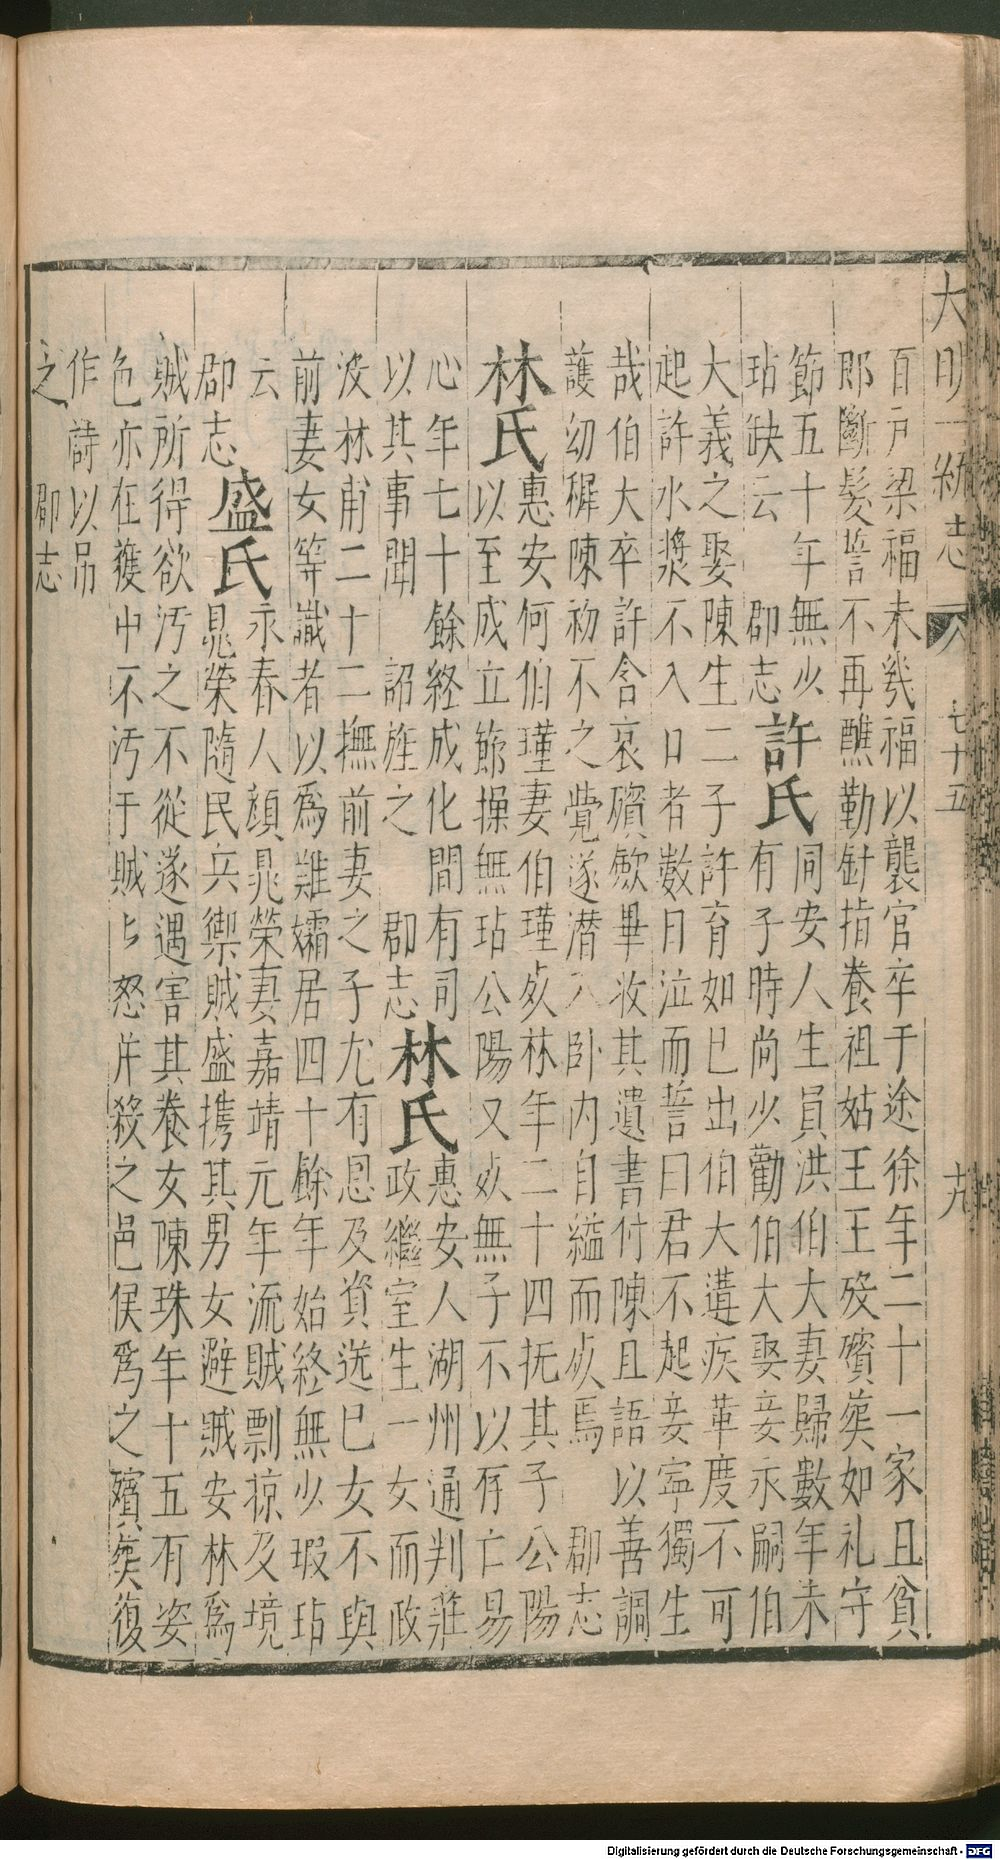 大明一統志 八 七十五 十九
百戸梁福未幾福以襲官卒于途徐年二十一家且貧
郎斷髮誓不再醮勤針指養祖姑王王歿殯葬如礼守
節五十年無少
玷缺云 郡志
許氏
同安人生員洪伯大妻歸數年未
有子時尚少勸伯大娶妾永嗣伯
大義之娶陳生二子許育如已出伯大遘疾革度不可
起許水漿不入口者數日泣而誓曰君不起妾寧獨生
哉伯大卒許含哀殯歛畢收其遺書付陳且語以善調
護幼穉陳初不之覺遂潜入卧内自縊而死焉 郡志
林氏
惠安何伯瑾妻伯瑾死林年二十四抚其子公陽
以至成立節操無玷公陽又死無子不以存亡易
心年七十餘経成化間有司
以其事聞 詔旌之 郡志
林氏
惠安人湖州通判莊
政繼室生一女而政
没林甫二十二撫前妻之子尤有恩及資送已女不與
前妻女等識者以爲難孀居四十餘年始終無少瑕玷
云
郡志
盛氏
永春人顔晁榮妻嘉靖元年流賊剽掠及境
晁榮隨民兵禦賊盛携其男女避賊安林爲
賊所得欲汚之不從遂遇害其養女陳珠年十五有姿
色亦在獲中不汚于賊〻怒并殺之邑侯爲之殯葬復
作詩以吊
之 郡志
Digitalisierung gefördert durch die Deutsche Forschungsgemeinschaft - DFG